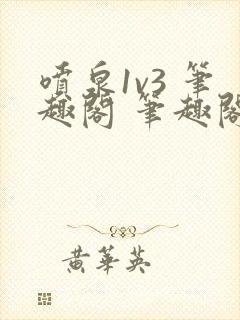 噴泉1v3 筆
趣閣 筆趣閣
黃華英